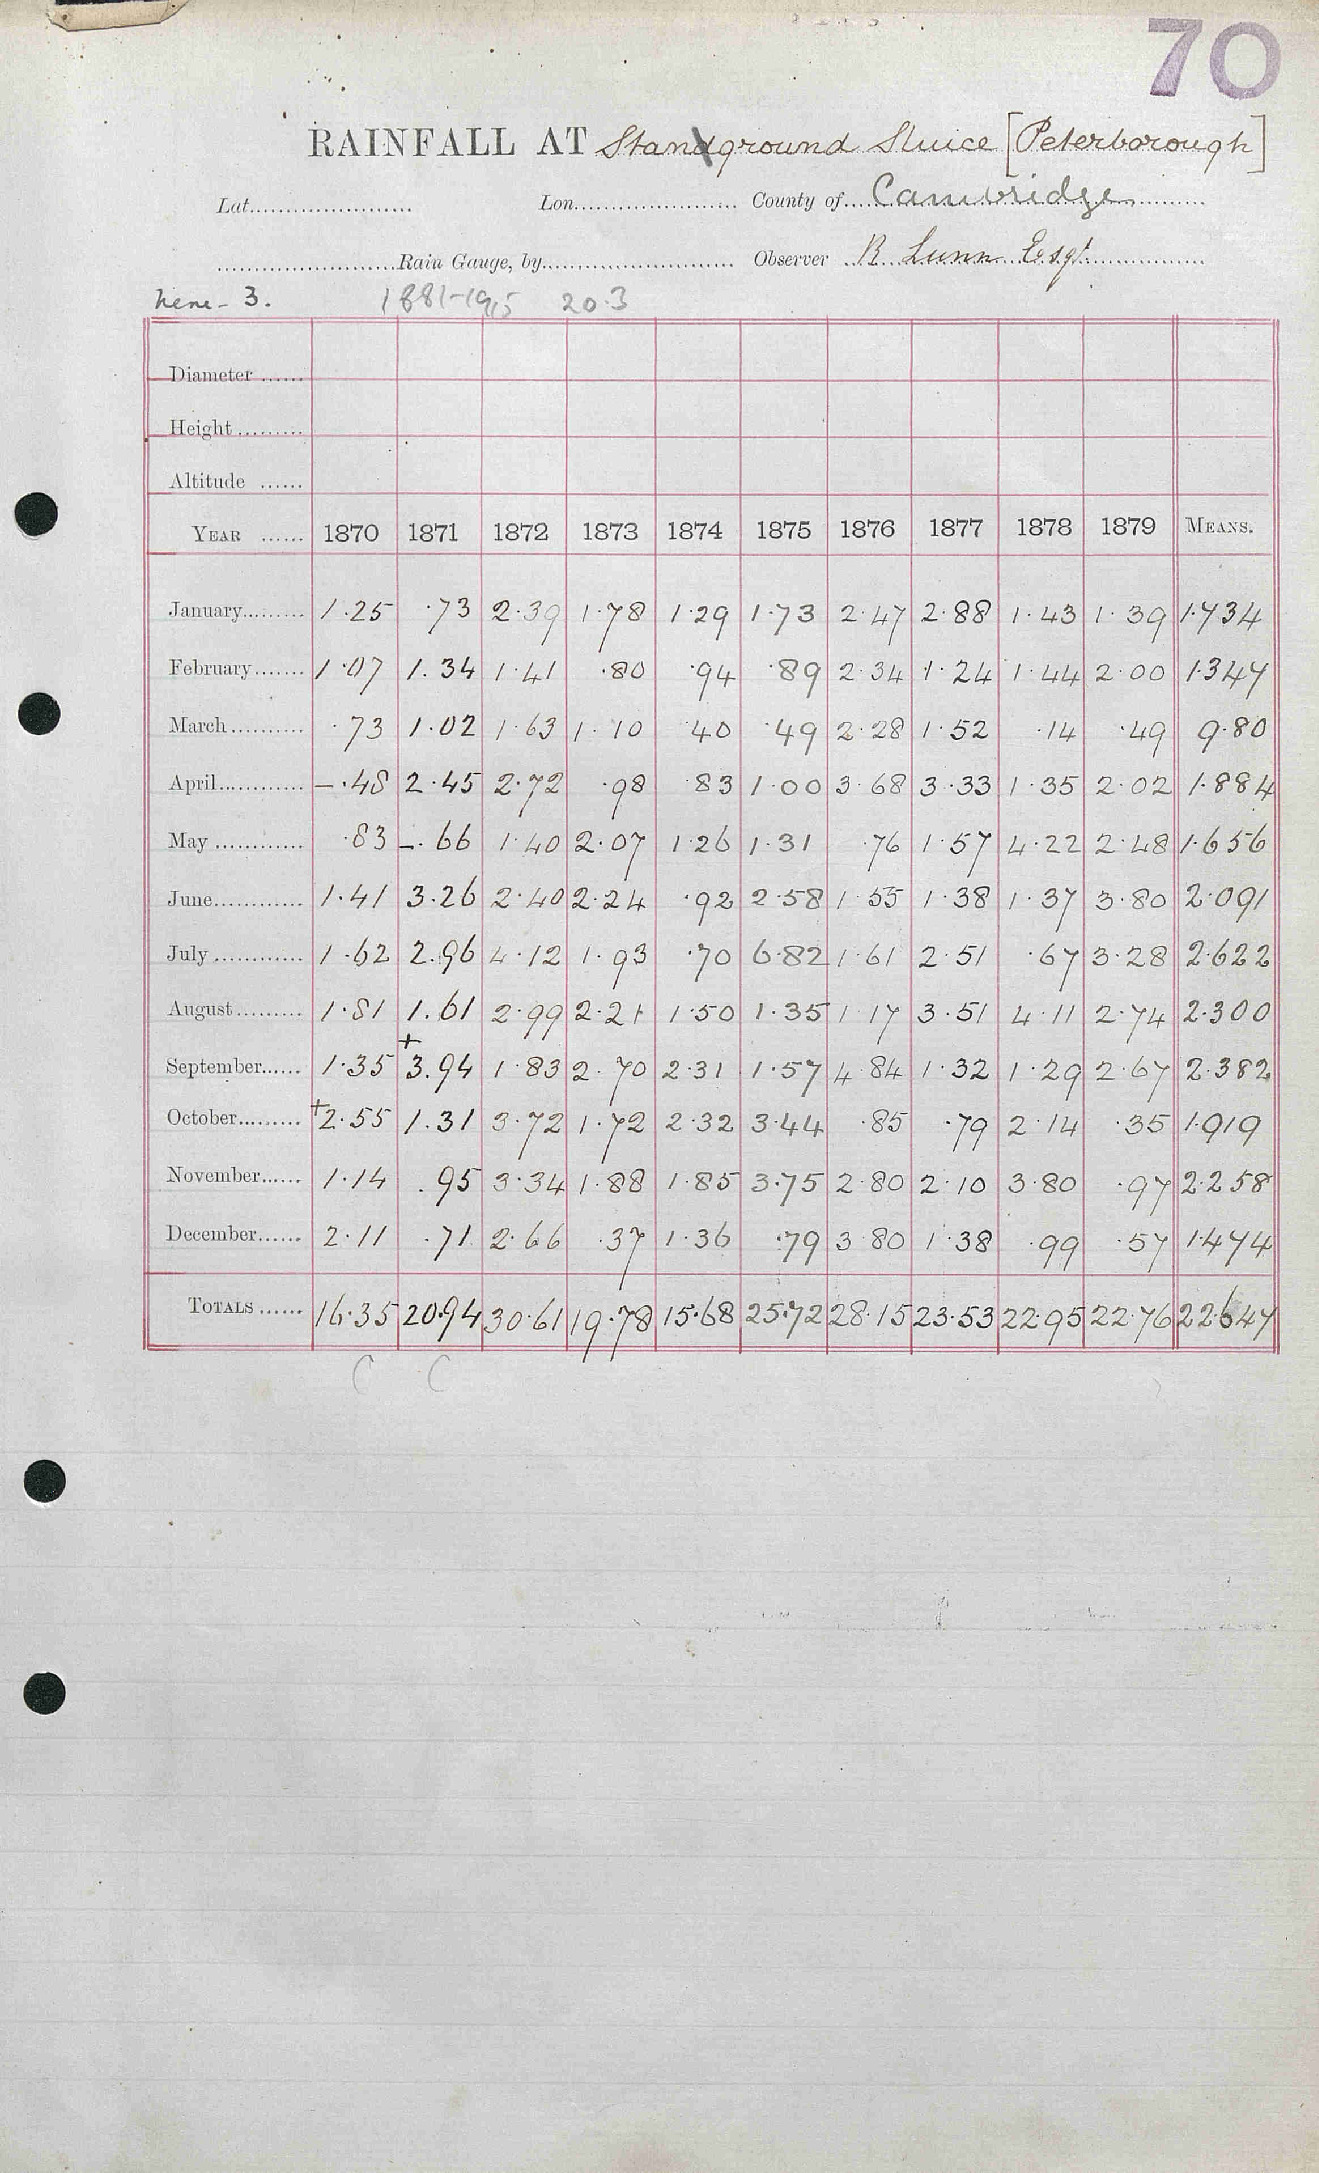 70
RAINFALL AT Standground Sluice [Peterborough]
Lat. Lon. County of Cambridge
Rain Gauge, by Observer R Lunn Esqr.
Nene - 3. 1881-1915 20.3
Diameter
Height
Altitude
YEAR 1870 1871 1872 1873 1874 1875 1876 1877 1878 1879 MEANS.
January 1.25 .73 2.39 1.78 1.29 1.73 2.47 2.88 1.43 1.39 1.734
February 1.07 1.34 1.41 .80 .94 .89 2.34 1.24 1.44 2.00 1.347
March .73 1.02 1.63 1.10 .40 .49 2.28 1.52 .14 .49 9.80
April -.48 2.45 2.72 .98 .83 1.00 3.68 3.33 1.35 2.02 1.884
May .83 -.66 1.40 2.07 1.26 1.31 .76 1.57 4.22 2.48 1.656
June 1.41 3.26 2.40 2.24 .92 2.58 1.55 1.38 1.37 3.80 2.091
July 1.62 2.96 4.12 1.93 .70 6.82 1.61 2.51 .67 3.28 2.622
August 1.81 1.61 2.99 2.21 1.50 1.35 1.17 3.51 4.11 2.74 2.300
September 1.35 +3.94 1.83 2.70 2.31 1.57 4.84 1.32 1.29 2.67 2.382
October +2.55 1.31 3.72 1.72 2.32 3.44 .85 .79 2.14 .35 1.919
November 1.14 .95 3.34 1.88 1.85 3.75 2.80 2.10 3.80 .97 2.258
December 2.11 .71 2.66 .37 1.36 .79 3.80 1.38 .99 .57 1.474
TOTALS 16.35 20.94 30.61 19.78 15.68 25.72 28.15 23.53 22.95 22.76 22.647
C C